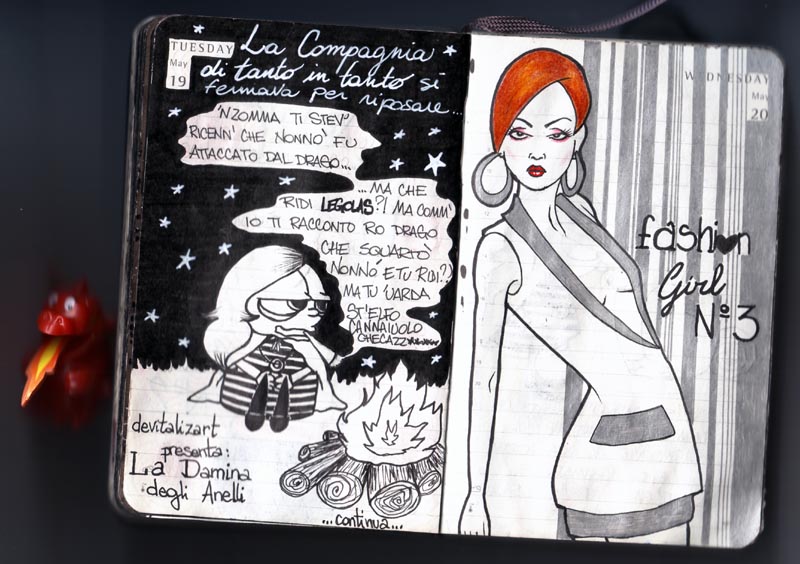 TUESDAY
May
19
La Compagnia
di tanto in tanto si
fermava per riposare...
'NZOMMA TI STEV'
RICENN' CHE NONNO' FU
ATTACCATO DAL DRAGO...
...MA CHE
RIDI LEGOLAS?! MA COMM'
IO TI RACCONTO RO DRAGO
CHE SQUARTÒ
NONNÒ E TU RIDI?!
MA TU 'UARDA
ST'ELFO
CANNAIUOLO
CHECAZZ
devitalizart
presenta:
La Damina
degli Anelli
...continua...
WEDNESDAY
May
20
fashion
Girl
Nº3